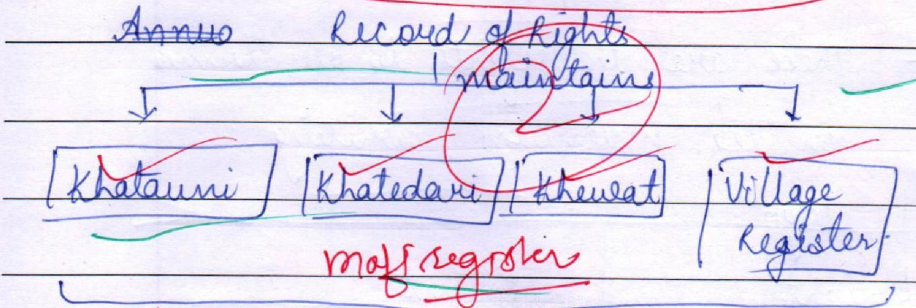 Annuo Record of Rights
maintains
2
Khatauni Khatedari Khewat Village
Register
Mafi register